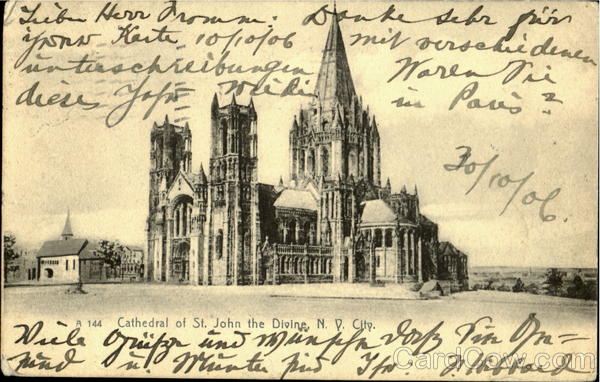 Lieber Herr Promm. Danke sehr für
Ihre Karte 10/10/06 mit verschiedenen
unterschreibungen Waren Sie
dieses Jahr in Paris?
30/10/06
A 144 Cathedral of St. John the Divine, N. Y. City.
Viele Grüsse und wünsche daß Sie
und u. Munter sind Ihr
CardCow.com